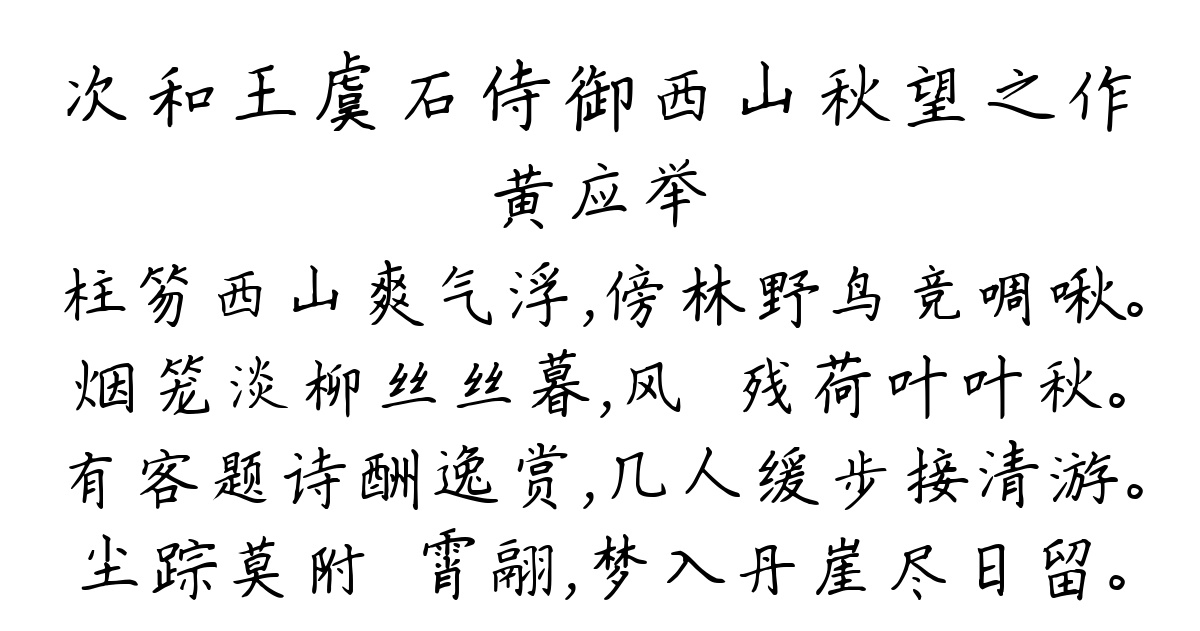 次和王虞石侍御西山秋望之作
黄应举
柱笏西山爽气浮,傍林野鸟竞啁啾。
烟笼淡柳丝丝暮,风 残荷叶叶秋。
有客题诗酬逸赏,几人缓步接清游。
尘踪莫附 霄翮,梦入丹崖尽日留。